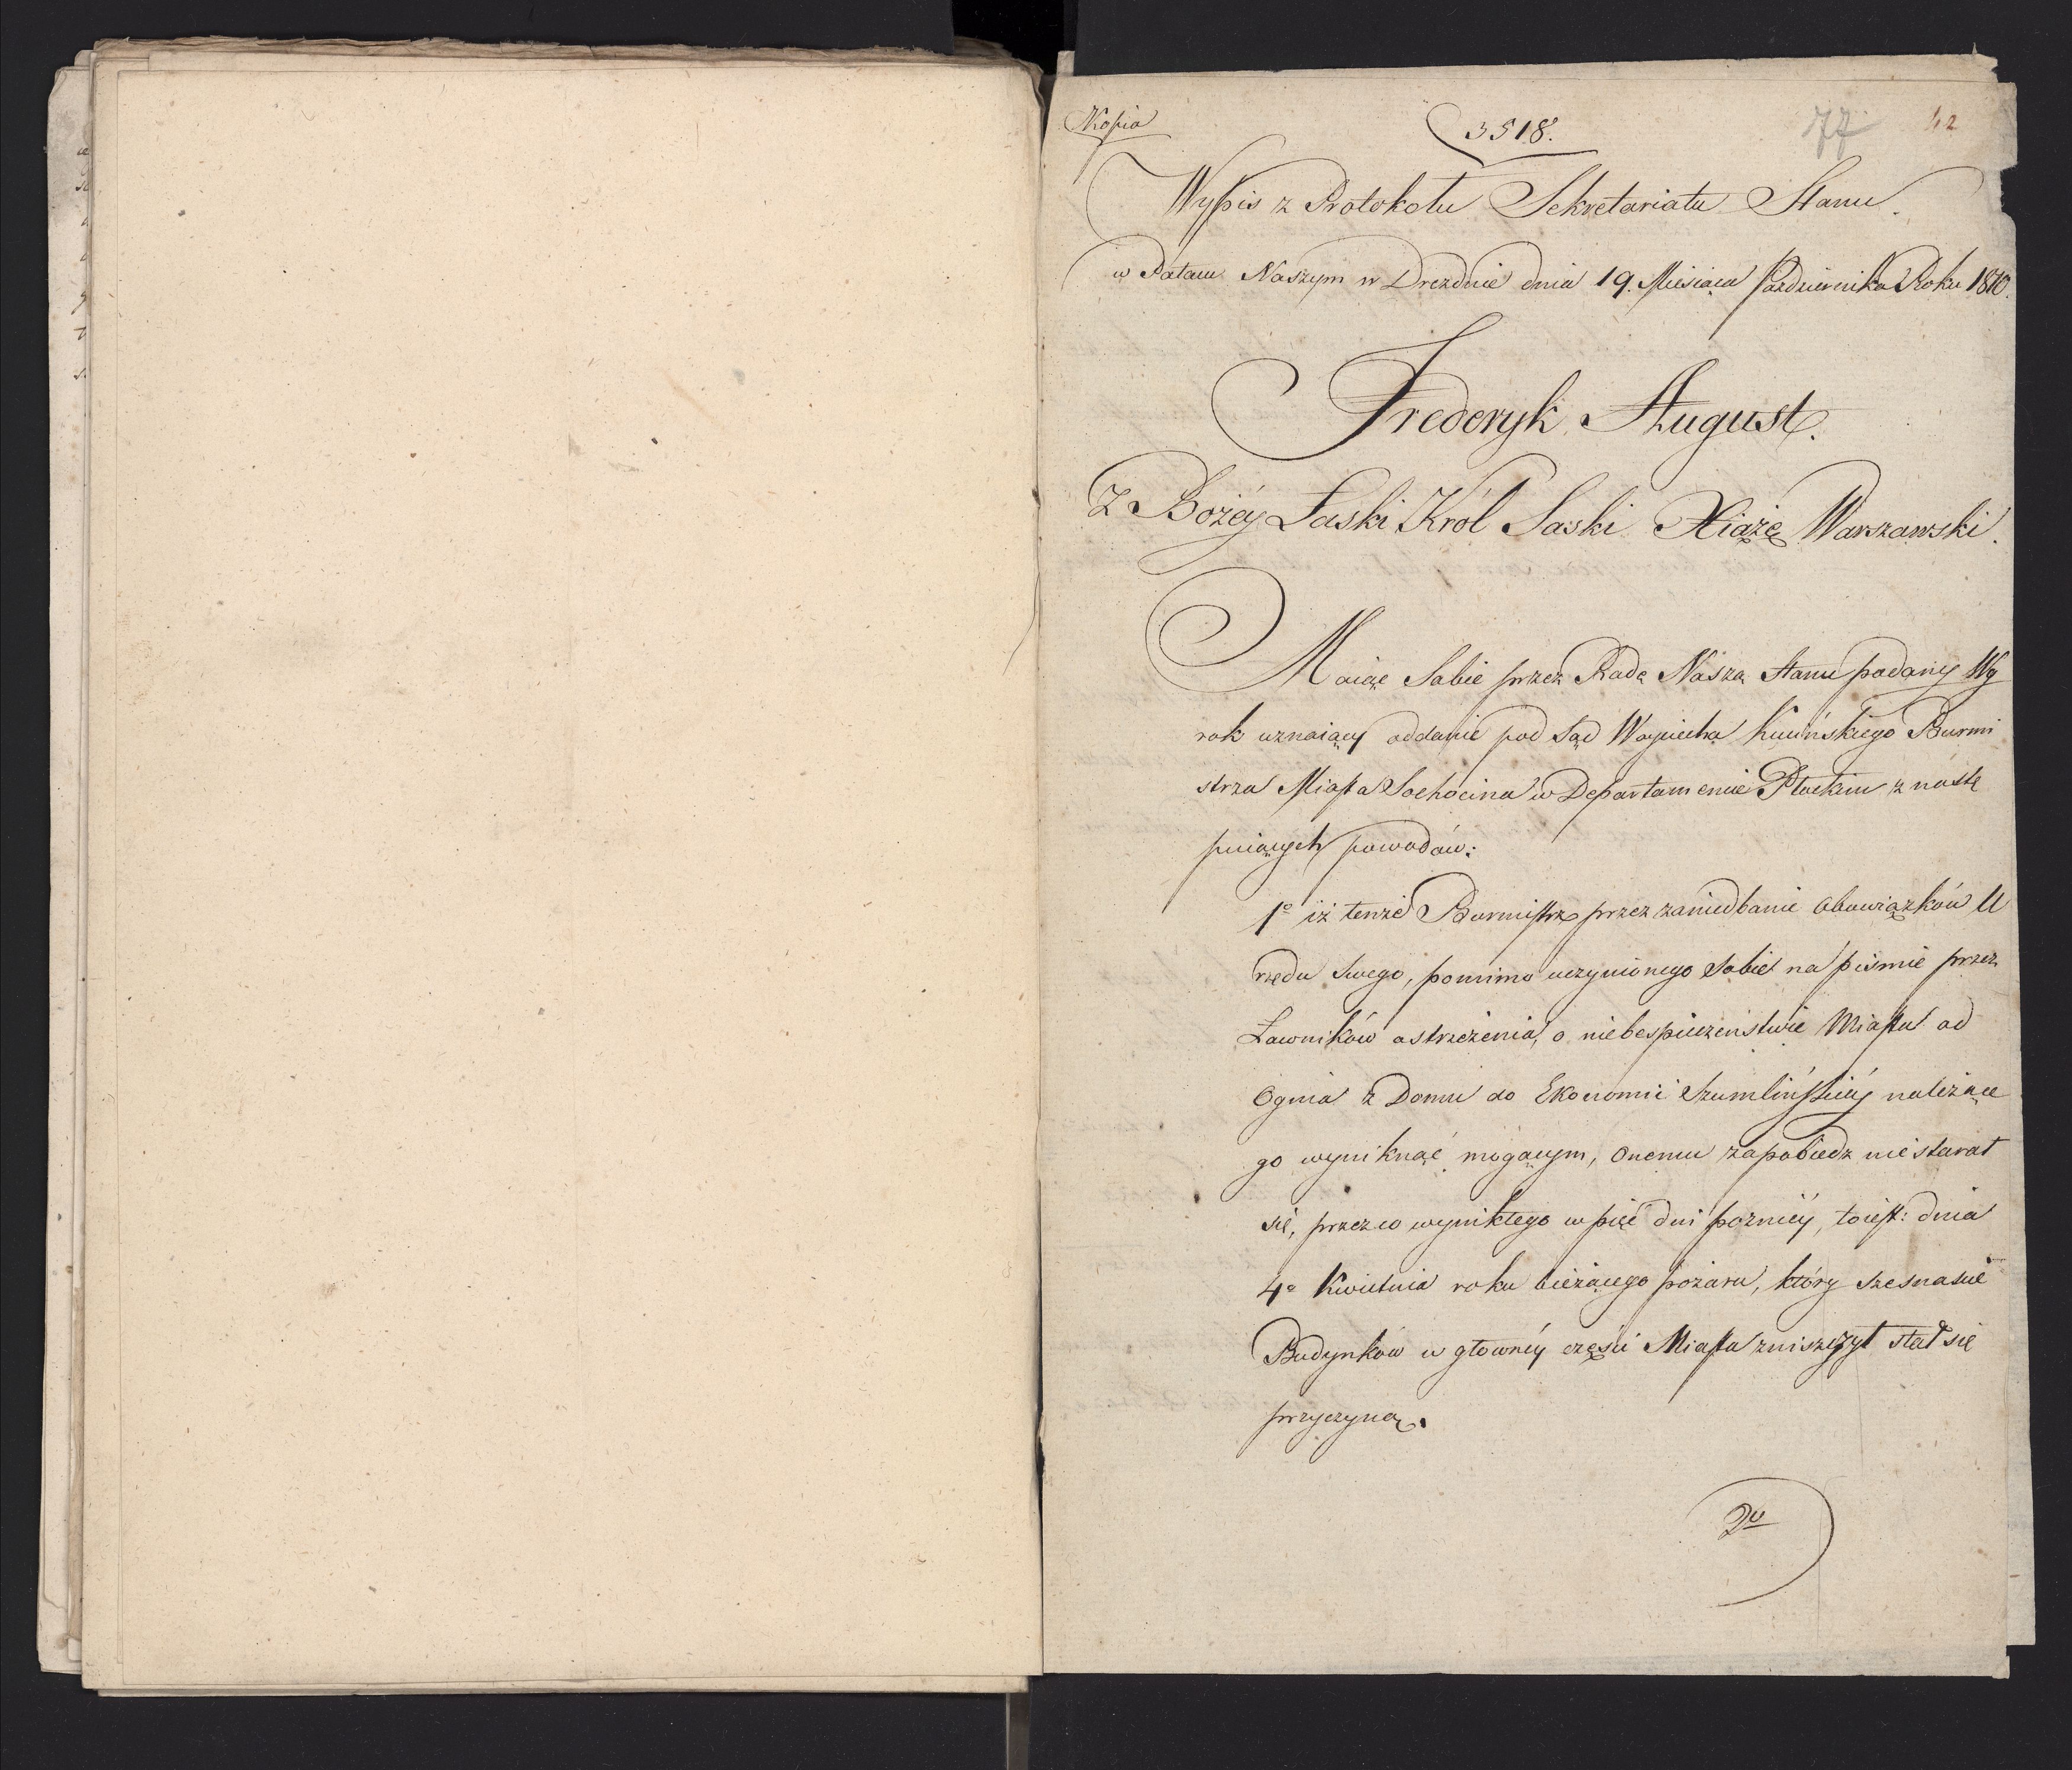 Kopia
3518.
77 42
Wypis z Protokołu Sekretariatu Stanu.
w Pałacu Naszym w Dreznie dnia 19. Miesiąca Października Roku 1810.
Frederyk August.
Z Bożéy Łaski Król Saski Xiążę Warszawski.
Maiąc Sobie przez Radę Naszą Stanu podany Wy
rok uznaiący oddanie pod Sąd Woyciecha Kucińskiego Burmi
strza Miasta Sochocina w Departamencie Płockim z nastę
puiących powodów:
1° iż tenże Burmistrz przez zaniedbanie Obowiązków U
rzędu Swego, pomimo uczynionego Sobie na piśmie przez
Ławników ostrzeżenia, o niebespieczeństwie Miastu od
Ognia z Domu do Ekonomii Szumlińskiéy należące
go wyniknąć mogącym, Onemu zapobiedz nie starał
się, przez co wynikłego w pięć dni pozniéy, toiest: dnia
4° Kwietnia roku bieżącego pożaru, który szesnascie
Budynków w głownéy części Miasta zniszczył stał się
przyczyną.